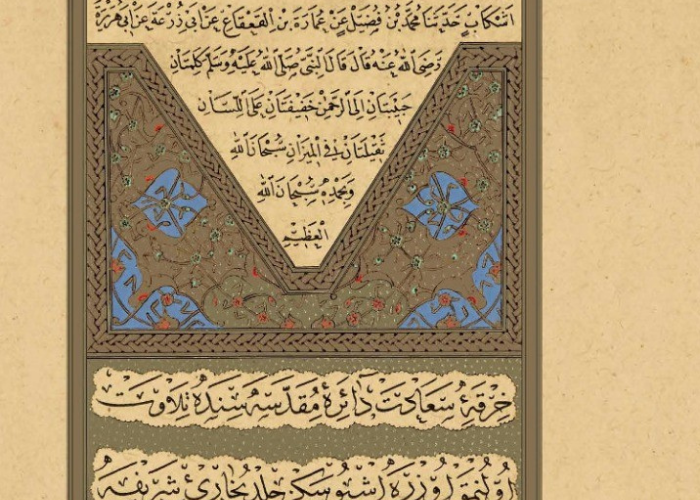 اشكاب حدثنا محمد بن فضيل عن عمارة بن القعقاع عن ابى زرعة عن ابى هريرة
رضى الله عنه قال قال النبى صلى الله عليه وسلم كلمتان
حبيبتان الى الرحمن خفيفتان على اللسان
ثقيلتان فى الميزان سبحان الله
وبحمده سبحان الله
العظيم
خرقهٔ سعادت دائرهٔ مقدسه سنده تلاوت
اولنمق اوزره اشبو سكز جلد بخارئ شريفه